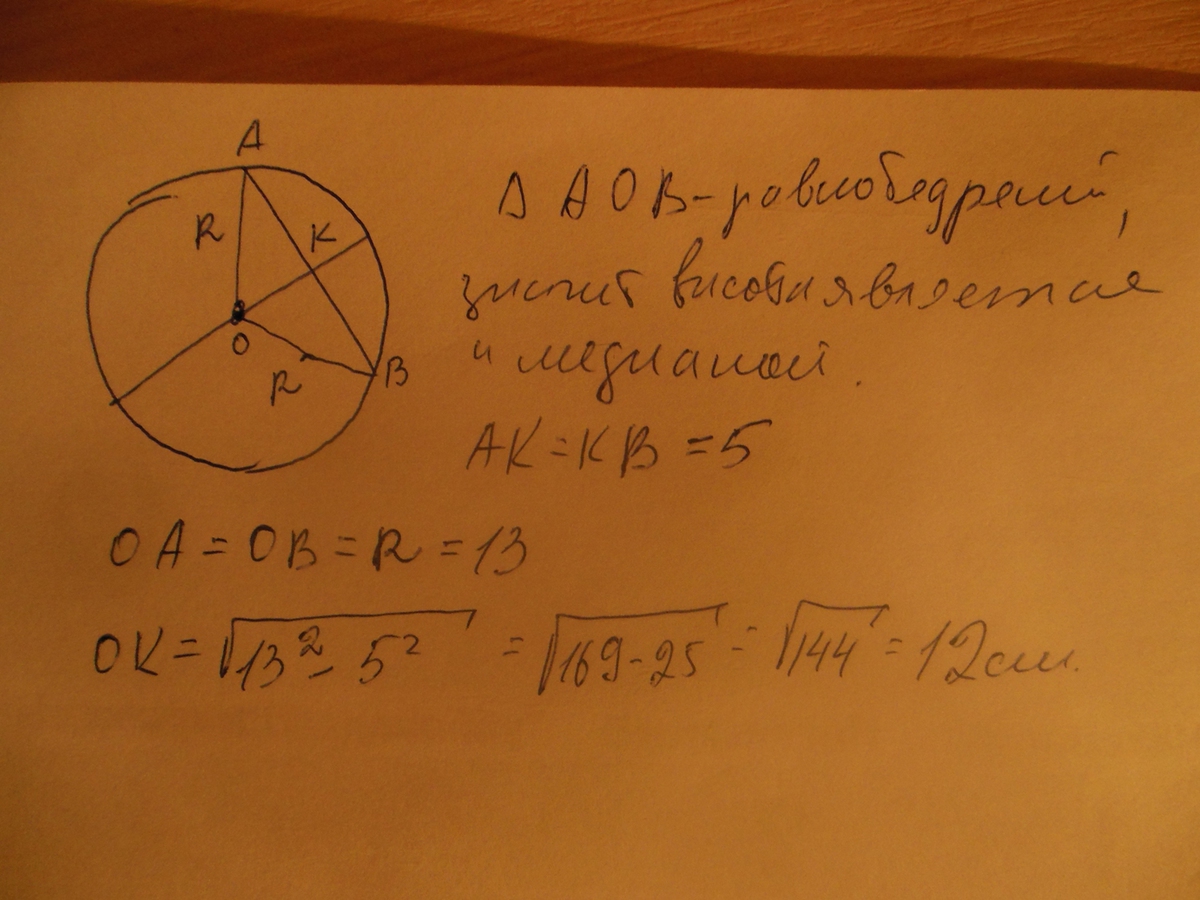 A
R
K
O
R
B
Δ AOB - равнобедрений,
значит висота является
и медианой.
AK = KB = 5
OA = OB = R = 13
OK = √13² - 5² = √169-25 = √144 = 12см.